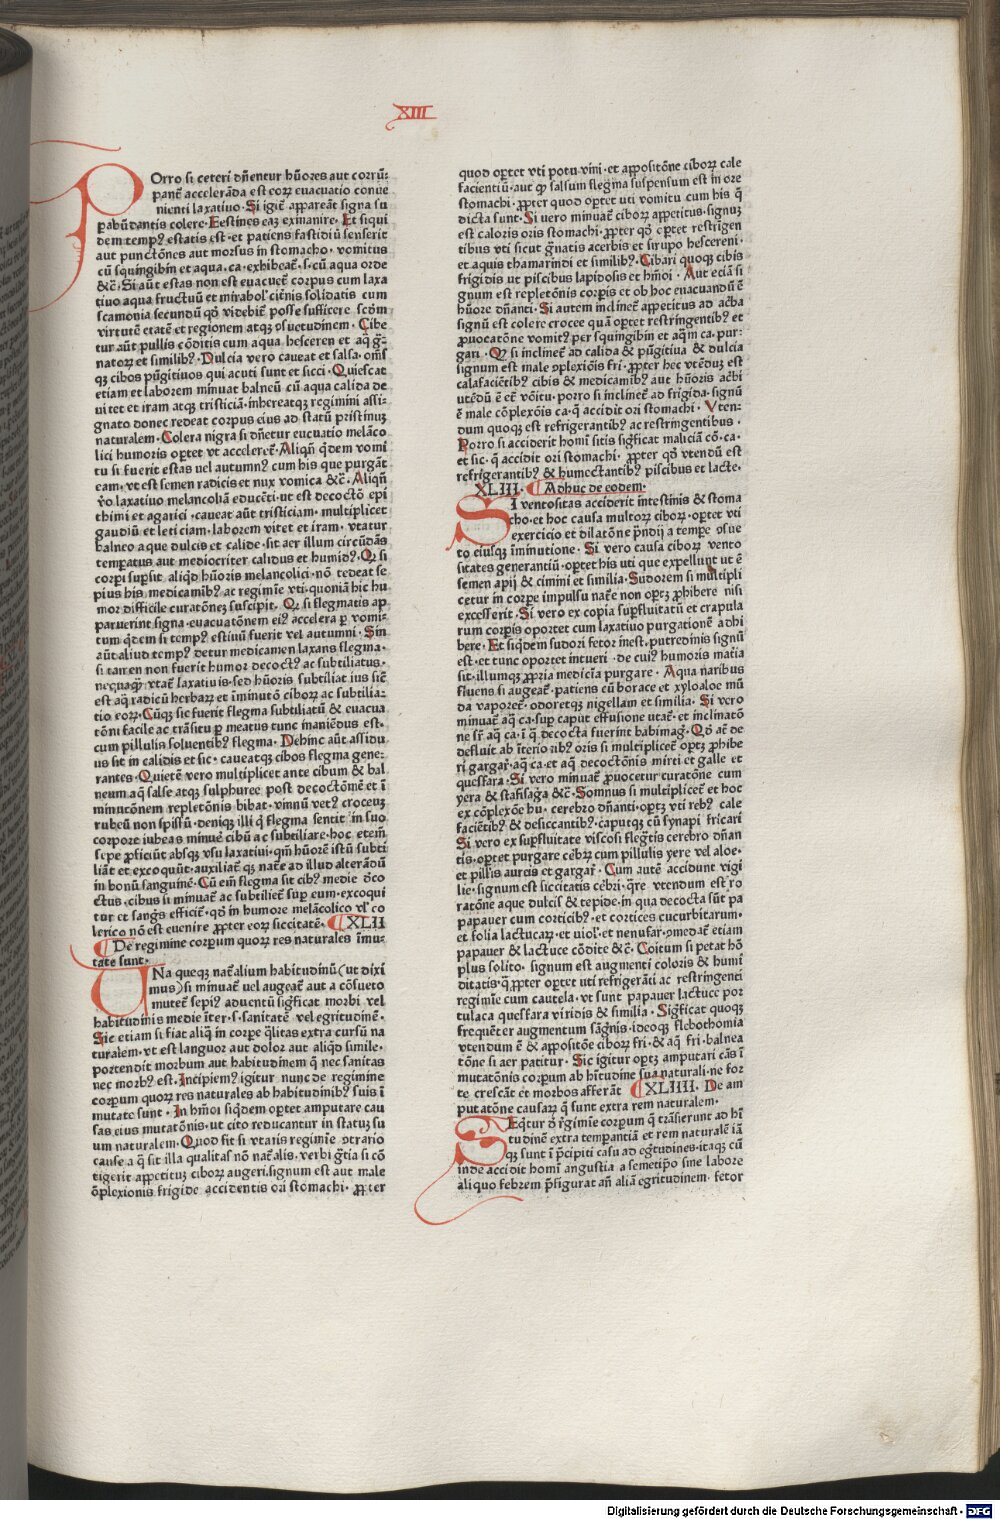 XIII
POrro si ceteri dñentur hũores aut corrũ-
panẽ accelerãda est eoꝝ euacuatio conue
nienti laxatiuo. Si igiẽ appareãt signa su
pabũdantis colere. Eestines eaz exinanire. Et siqui
dem tempꝰ estatis est. et patiens fastidiũ senserit
aut punctõnes aut morsus in stomacho. vomitus
cũ squingibin et aqua. ca. exhibeaẽ. s. cũ aqua orde
&c̃. Si aũt estas non est euacueẽ corpus cum laxa
tiuo aqua fructuũ et mirabol' citr̃nis solidatis cum
scamonia secundũ qđ videbiẽ posse sufficere scđm
virtutẽ etatẽ et regionem atqꝫ ꝯsuetudinem. Cibe
tur aũt pullis cõditis cum aqua hesceren et aq̃ g̃-
natoꝝ et similibꝰ. Dulcia vero caueat et salsa. om̃s
qꝫ cibos pũgitiuos qui acuti sunt et sicci. Quiescat
etiam et laborem minuat balneũ cũ aqua calida de
uitet et iram atqꝫ tristiciã. inhereatqꝫ regimini assi-
gnato donec redeat corpus eius ad statũ pristinuꝫ
naturalem. Colera nigra si dñetur eucuatio melãco
lici humoris oꝑtet vt acclereẽ. Aliqñ q̃dem vomi
tu si fuerit estas uel autumnꝰ cum his que purgãt
eam. vt est semen radicis et nux vomica &c̃. Aliqñ
ṽo laxatiuo melancoliã educẽti. ut est decoctõ epi
thimi et agarici. caueat aũt tristiciam. multiplicet
gaudiũ et leticiam. laborem vitet et iram. vtatur
balneo aque dulcis et calide. sit aer illum circũdãs
temꝑatus aut mediocriter calidus et humidꝰ. Qꝫ si
corꝑi suꝑsit aliqđ hũoris melancolici. nõ tedeat se
pius his medicamibꝰ ac regimĩe vti. quoniã hic hu
mor difficile curatõneꝫ suscipit. Qꝫ si flegmatis ap
paruerint signa. euacuatõnem eiꝰ accelera ꝑ vomi-
tum q̃dem si tempꝰ estiuũ fuerit vel autumni. Sin
aũt aliud tempꝰ detur medicamen laxans flegma.
si tamen non fuerit humor decoctꝰ ac subtiliatus.
neq̃ꝗ vtaẽ laxatiuis. sed hũoris subtiliat ius siẽ
est aq̃ radicũ herbaꝝ et ĩminutõ ciboꝝ ac subtilia-
tio eoꝝ. Cũqꝫ sic fuerit flegma subtiliatũ & euacua
tõni facile ac trãsitu ꝑ meatus tunc inaniẽdus est.
cum pillulis soluentibꝰ flegma. Dehinc aũt assidu
us sit in calidis et sic. caueatqꝫ cibos flegma gene-
rantes. Quietẽ vero multiplicet ante cibum & bal
neum aq̃ salse atqꝫ sulphuree post decoctõmẽ et ĩ
minutõnem repletõnis bibat. vinnũ vetꝰ croceuꝫ
rubeũ non spissũ. deniqꝫ illi q̃ flegma sentit in suo
corpore iubeas minuẽ cibũ ac subtiliare. hoc etem̃
sepe ꝓficiũt absqꝫ vsu laxatiui. qm̃ hũorẽ istũ subti
liãt et excoquũt. auxiliaẽ qꝫ naẽe ad illud alterãdũ
in bonũ sanguinẽ. Cũ em̃ flegma sit cibꝰ medie ꝺco
ctus. cibus si minuaẽ ac subtilieẽ suꝑ eum. excoqui
tur et sang̃s efficiẽ. qđ in humore melãcolico vl' co
lerico nõ est euenire ꝓpter eoꝝ siccitatẽ. XLII
De regimine corpum quoꝝ res naturales ĩmu-
tate sunt.
UNa queqꝫ naẽalium habitudinũ (ut dixi
mus) si minuaẽ vel augeaẽ aut a cõsueto
muteẽ sepiꝰ aduentũ sig̃ficat morbi vel
habitudinis medie ĩter. s. sanitatẽ vel egritudinẽ.
Sic etiam si fiat aliq̃ in corꝑe q̃litas extra cursũ na
turalem. vt est languor aut dolor aut aliqđ simile.
portendit morbum aut habitudinem q̃ nec sanitas
nec morbꝰ est. Incipiemꝰ igitur nunc de regimine
corpum quoꝝ res naturales ab habitudinibꝰ suis ĩ
mutate sunt. In hm̃oi siq̃dem oꝑtet amputare cau
sas eius mutatõnis. ut cito reducantur in statuꝫ su
um naturalem. Quod fit si vtaris regimĩe ꝯtrario
cause a q̃ sit illa qualitas nõ naẽalis. verbi g̃tia si cõ
tigerit appetituꝫ ciboꝝ augeri. signum est aut male
ꝯplexionis frigide accidentis ori stomachi. ꝓpter
quod oꝑtet vti potu vini. et appositõne ciboꝝ cale
facientiũ. aut qꝫ salsum flegma suspensum est in ore
stomachi. ꝓpter quod oꝑtet uti vomitu cum his q̃
dicta sunt. Si vero minuaẽ ciboꝝ appetitus. signuꝫ
est caloris oris stomachi. ꝓpter qđ oꝑtet restrigen
tibus vti sicut g̃natis acerbis et sirupo hescereni.
et aquis thamarindi et similibꝰ. Cibari quoqꝫ cibis
frigidis ut piscibus lapidosis et hm̃oi. Aut eciã si
gnum est repletõnis corꝑis et ob hoc euacuandũ ẽ
hũore dñanti. Si autem inclineẽ appetitus ad acĩba
signũ est colere crocee quã oꝑtet restringentibꝰ et
ꝓuocatõne vomitꝰ per squingibin et aq̃m ca. pur-
gari. Qꝫ si inclineẽ ad calida & pũgitiua & dulcia
signum est male ꝯplexiõis fri. ꝓpter hec vtẽduꝫ est
calafaciẽtibꝰ cibis & medicamibꝰ aut hũoris acĩbi
utẽdũ ẽ eẽ võitu. porro si inclineẽ ad frigida. signũ
ẽ male cõplexõis ca. q̃ accidit ori stomachi. Vten-
dum quoqꝫ est refrigerantibꝰ ac restringentibus.
Porro si acciderit homĩ sitis sig̃ficat maliciã cõ. ca.
et sic. q̃ accidit ori stomachi. ꝓpter qđ vtendũ est
refrigerantibꝰ & humectantibꝰ piscibus et lacte.
XLIII. Adhuc de eodem.
SI ventositas acciderit intestinis & stoma
cho. et hoc causa multoꝝ ciboꝝ. oꝑtet vti
exercicio et dilatõne p̃ndij a tempe ꝯsue
to eiusqꝫ ĩminutione. Si vero causa ciboꝝ vento
sitates generantiũ. oꝑtet his uti que expellunt ut ẽ
semen apij & cimini et similia. Sudorem si multipli
cetur in corꝑe impulsu naẽe non oꝑtꝫ ꝓhibere nisi
excesserit. Si vero ex copia suꝑfluitatũ et crapula
rum corꝑis oportet cum laxatiuo purgationẽ adhi
bere. Et siq̃dem sudori fetor inest. putredinis signũ
est. et tunc oportet intueri. de cuiꝰ humoris matĩa
sit. illumqꝫ ꝓpria medicĩa purgare. Aqua naribus
fluens si augeaẽ. patiens cũ borace et xyloaloe mũ
da vaporeẽ. odoretqꝫ nigellam et similia. Si vero
minuaẽ aq̃ ca. suꝑ caput effusione utaẽ. et inclinatõ
ne sr̃ aq̃ ca. ĩ q̃ decocta fuerint babimag̃. Qđ aẽ de
defluit ab ĩterioribꝰ oris si multipliceẽ oꝑtꝫ ꝓhibe
ri gargar̃. aq̃ ca. et aq̃ decoctõnis mirti et galle et
quesfara. Si vero minuaẽ ꝓuocetur curatõne cum
yera & stafisag̃a &c̃. Somnus si multipliceẽ et hoc
ex cõplexõe hu. cerebro dñanti. oꝑtꝫ vti rebꝰ cale
faciẽtibꝰ & desiccantibꝰ. caputqꝫ cũ synapi fricari
Si vero ex suꝑfluitate viscosi flegm̃tis cerebro dñan
tis. oꝑtet purgare cẽbꝝ cum pillulis yere vel aloe.
et pill'is aureis et gargar̃. Cum autẽ accidunt vigi
lie. signum est siccitatis cẽbri. q̃re vtendum est ro
ratõne aque dulcis & tepide. in qua decocta sũt pa
papauer cum corticibꝰ. et cortices cucurbitarum.
et folia lactucaꝝ. et uiol'. et nenufar. ꝯmedaẽ etiam
papauer & lactuce cõdite &c̃. Coitum si petat hõ
plus solito. signum est augmenti coloris & humi
ditatis. q̃ ꝓpter oꝑtet uti refrigerãti ac restringenti
regimĩe cum cautela. vt sunt papauer lactuce por
tulaca quesfara viridis & similia. Sig̃ficat quoqꝫ
frequẽter augmentum sãg̃nis. ideoqꝫ flebothomia
vtendum ẽ & appositõe ciboꝝ fri. & aq̃ fri. balnea
tõne si aer patitur. Sic igitur oꝑtꝫ amputari cãs ĩ
mutatõnis corpum ab hĩtudine sua naturali. ne for
te crescãt et morbos afferãt XLIIII. De am
putatõne causaꝝ q̃ sunt extra rem naturalem.
SEq̃tur ꝺ r̃gimĩe corpum q̃ trãsierunt ad hĩ
tudinẽ extra temꝑantiã et rem naturalẽ iã
qꝫ sunt ĩ p̃cipiti casu ad eg̃tudines. itaqꝫ cũ
inde accidit homĩ angustia a semetipõ sine labore
aliquo febrem p̃figurat añ aliã egritudinem. fetor
Digitalisierung gefördert durch die Deutsche Forschungsgemeinschaft - DFG